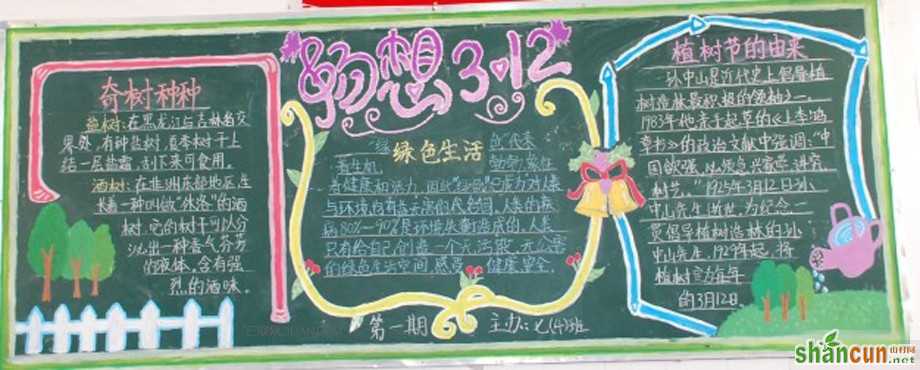 畅想3·12
奇树种种
盐树:在黑龙江与吉林省交
界处,有种盐树,夏季树干上
结一层盐霜,刮下来可食用。
酒树:在非洲东部地区,生
长着一种叫做"休洛"的酒
树,它的树干可以分
泌出一种香气芬芳
的液体,含有强
烈的酒味。
绿色生活
"绿色"代表
着生机
着健康和活力,因此"绿色"已成为对人类
与环境均有益无害的代名词。人类的疾
病80%—90%是环境失衡造成的,人类
只有给自己创造一个无法毁、无公害
的绿色生活空间,感受健康、安全。
植树节的由来
孙中山是近代史上倡导植
树造林最积极的领袖之一
1983年他亲手起草的《上李鸿
章书》的政治文献中强调:"中
国欲强,
树节。"1925年3月12日孙
中山先生逝世,为纪念一
贯倡导植树造林的孙
中山先生,1929年起,将
植树节定为每年
的3月12日
第一期 主办:七(4)班
shancun
山村网
.net